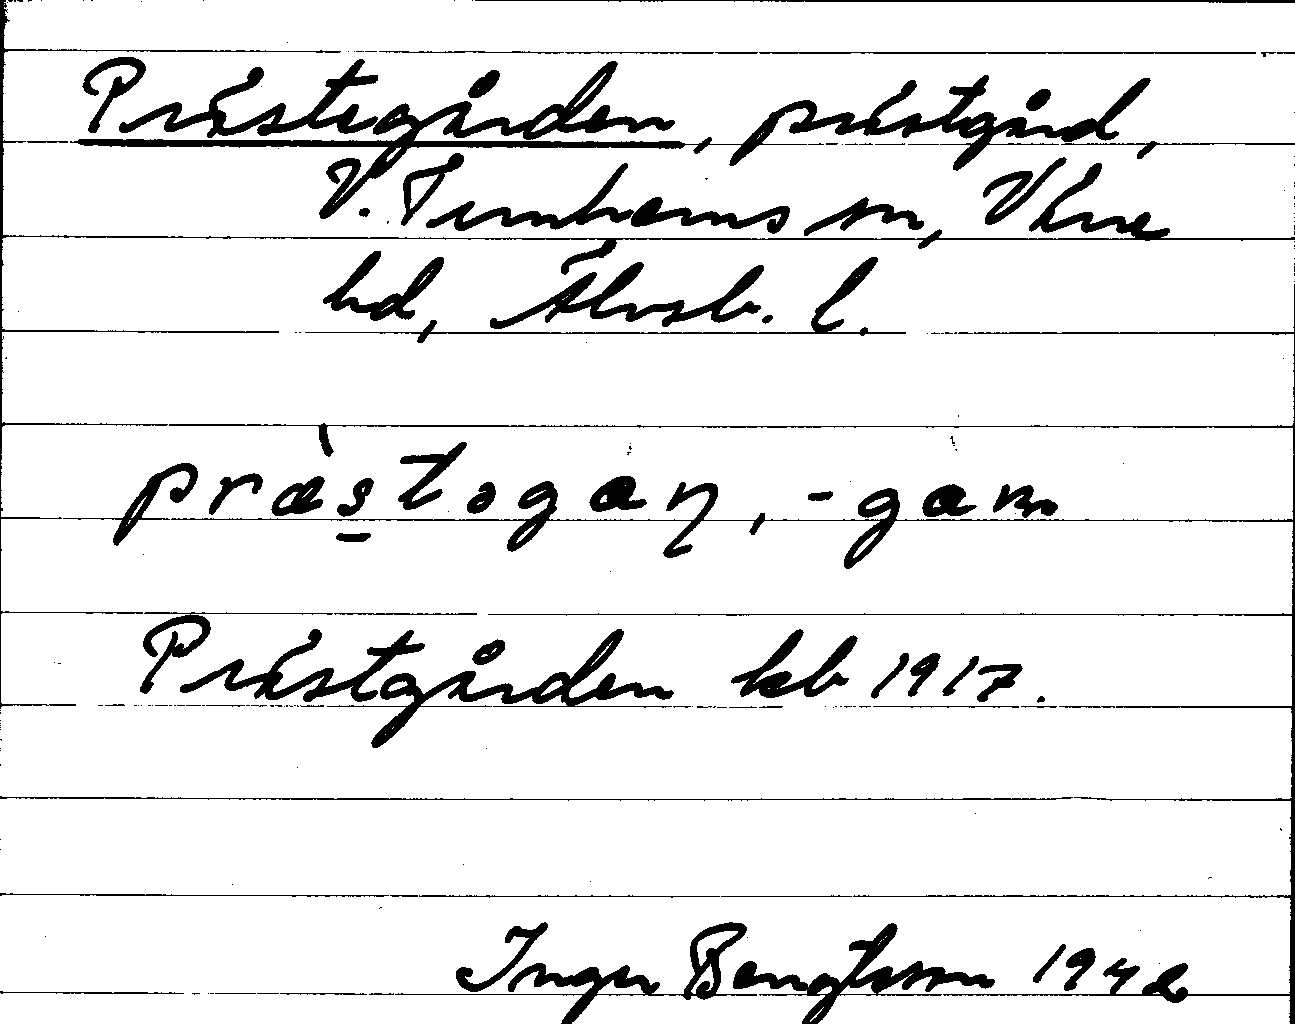 Prästegården, prästgård,
V. Tunhems sn, Väne
hd, Älvsb. l.
præ̀s̠təgan̥, -gam
Prästgården kb 1917.
Inger Bengtsson 1942